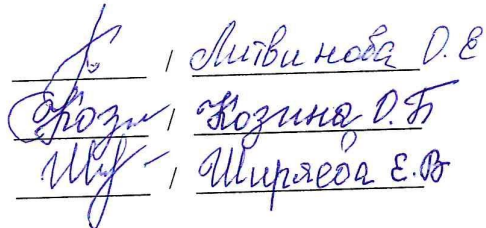 / Литвинова О.Е
Кози / Козина О.Б
Ши / Ширяева Е.В